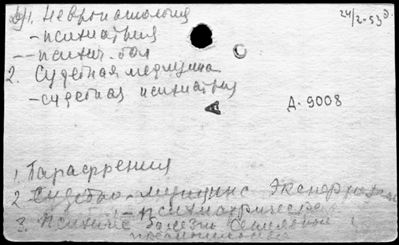 1. Невропатология
24/2-53
- психиатрия
-- психич. бол
2. Судебная медицина
- судебная психиатрия
Д-9008
1. Парафрения
2 Судебно-медицинс экспертиза
- психиатрическая
3. Психич болезнь